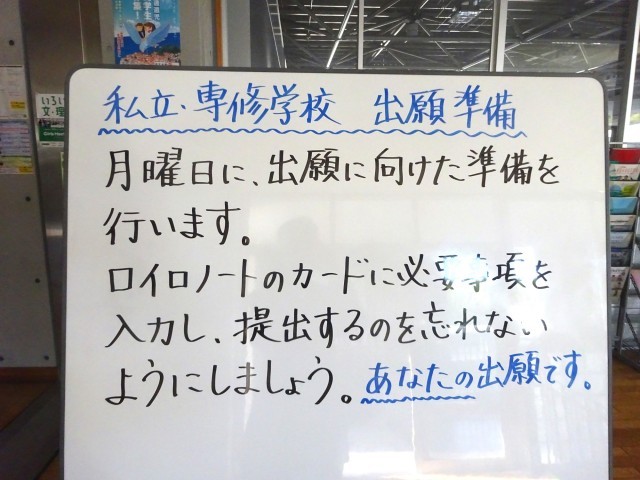 私立・専修学校　出願準備
月曜日に、出願に向けた準備を
行います。
ロイロノートのカードに必要事項を
入力し、提出するのを忘れない
ようにしましょう。あなたの出願です。